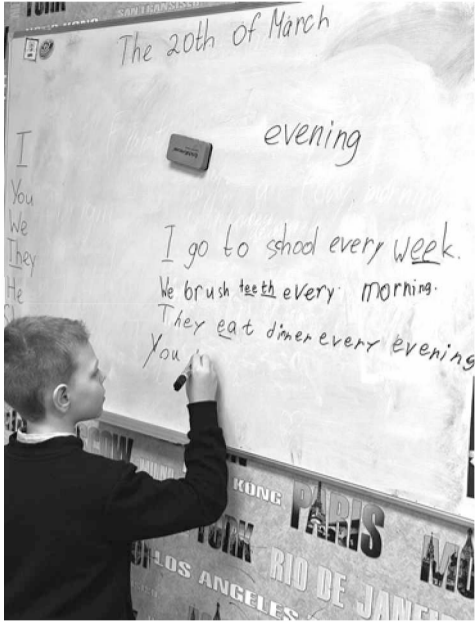 SAN FRANSISCO
The 20th of March
evening
I
You
We
They
He
I go to school every week.
We brush teeth every morning.
They eat dinner every evening
You
KONG
PARIS
YORK
RIO DE JANEI
LOS ANGELES